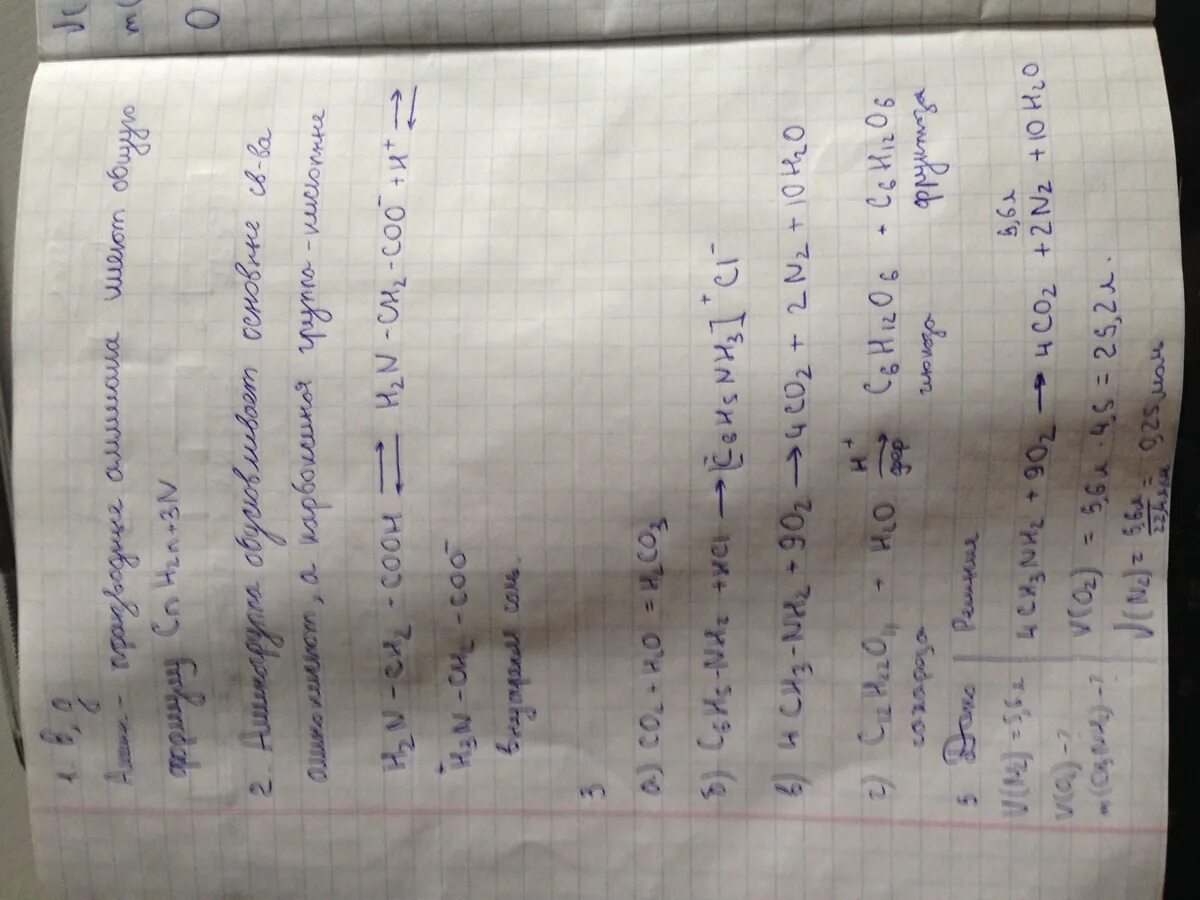 V(
m(
0
1. в, д
Амин - производные аммиака имеют общую
формулу CnH2n+3N
2. Аминогрупа обусловливает основные св-ва
аминокислот, а карбоксильная группа - кислотные
H2N - CH2 - COOH ⇌ H2N - CH2 - COO⁻ + H⁺ ⇌
⁺H3N - CH2 - COO⁻
внутреняя соль.
3
а) CO2 + H2O = H2CO3
б) C6H5-NH2 + HCl → [C6H5NH3]⁺Cl⁻
в) 4CH3-NH2 + 9O2 → 4CO2 + 2N2 + 10H2O
H⁺
г) C12H22O11 + H2O → C6H12O6 + C6H12O6
фер
сахароза глюкоза фруктоза
5 Дано Решение
5,6л
V(N2) = 5,6л 4CH3NH2 + 9O2 → 4CO2 + 2N2 + 10H2O
V(O2) - ? V(O2) = 5,6л · 4,5 = 25,2л.
m(CH3NH2) - ? √(N2) = 5,6л / 22,4л/м = 0,25 моль